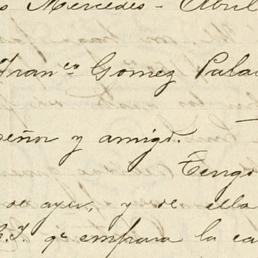 s Mercedes - Abril
Franco Gomez Pala
señor y amigo.
Tengo
de ayer, y de ella
qe empara la ca